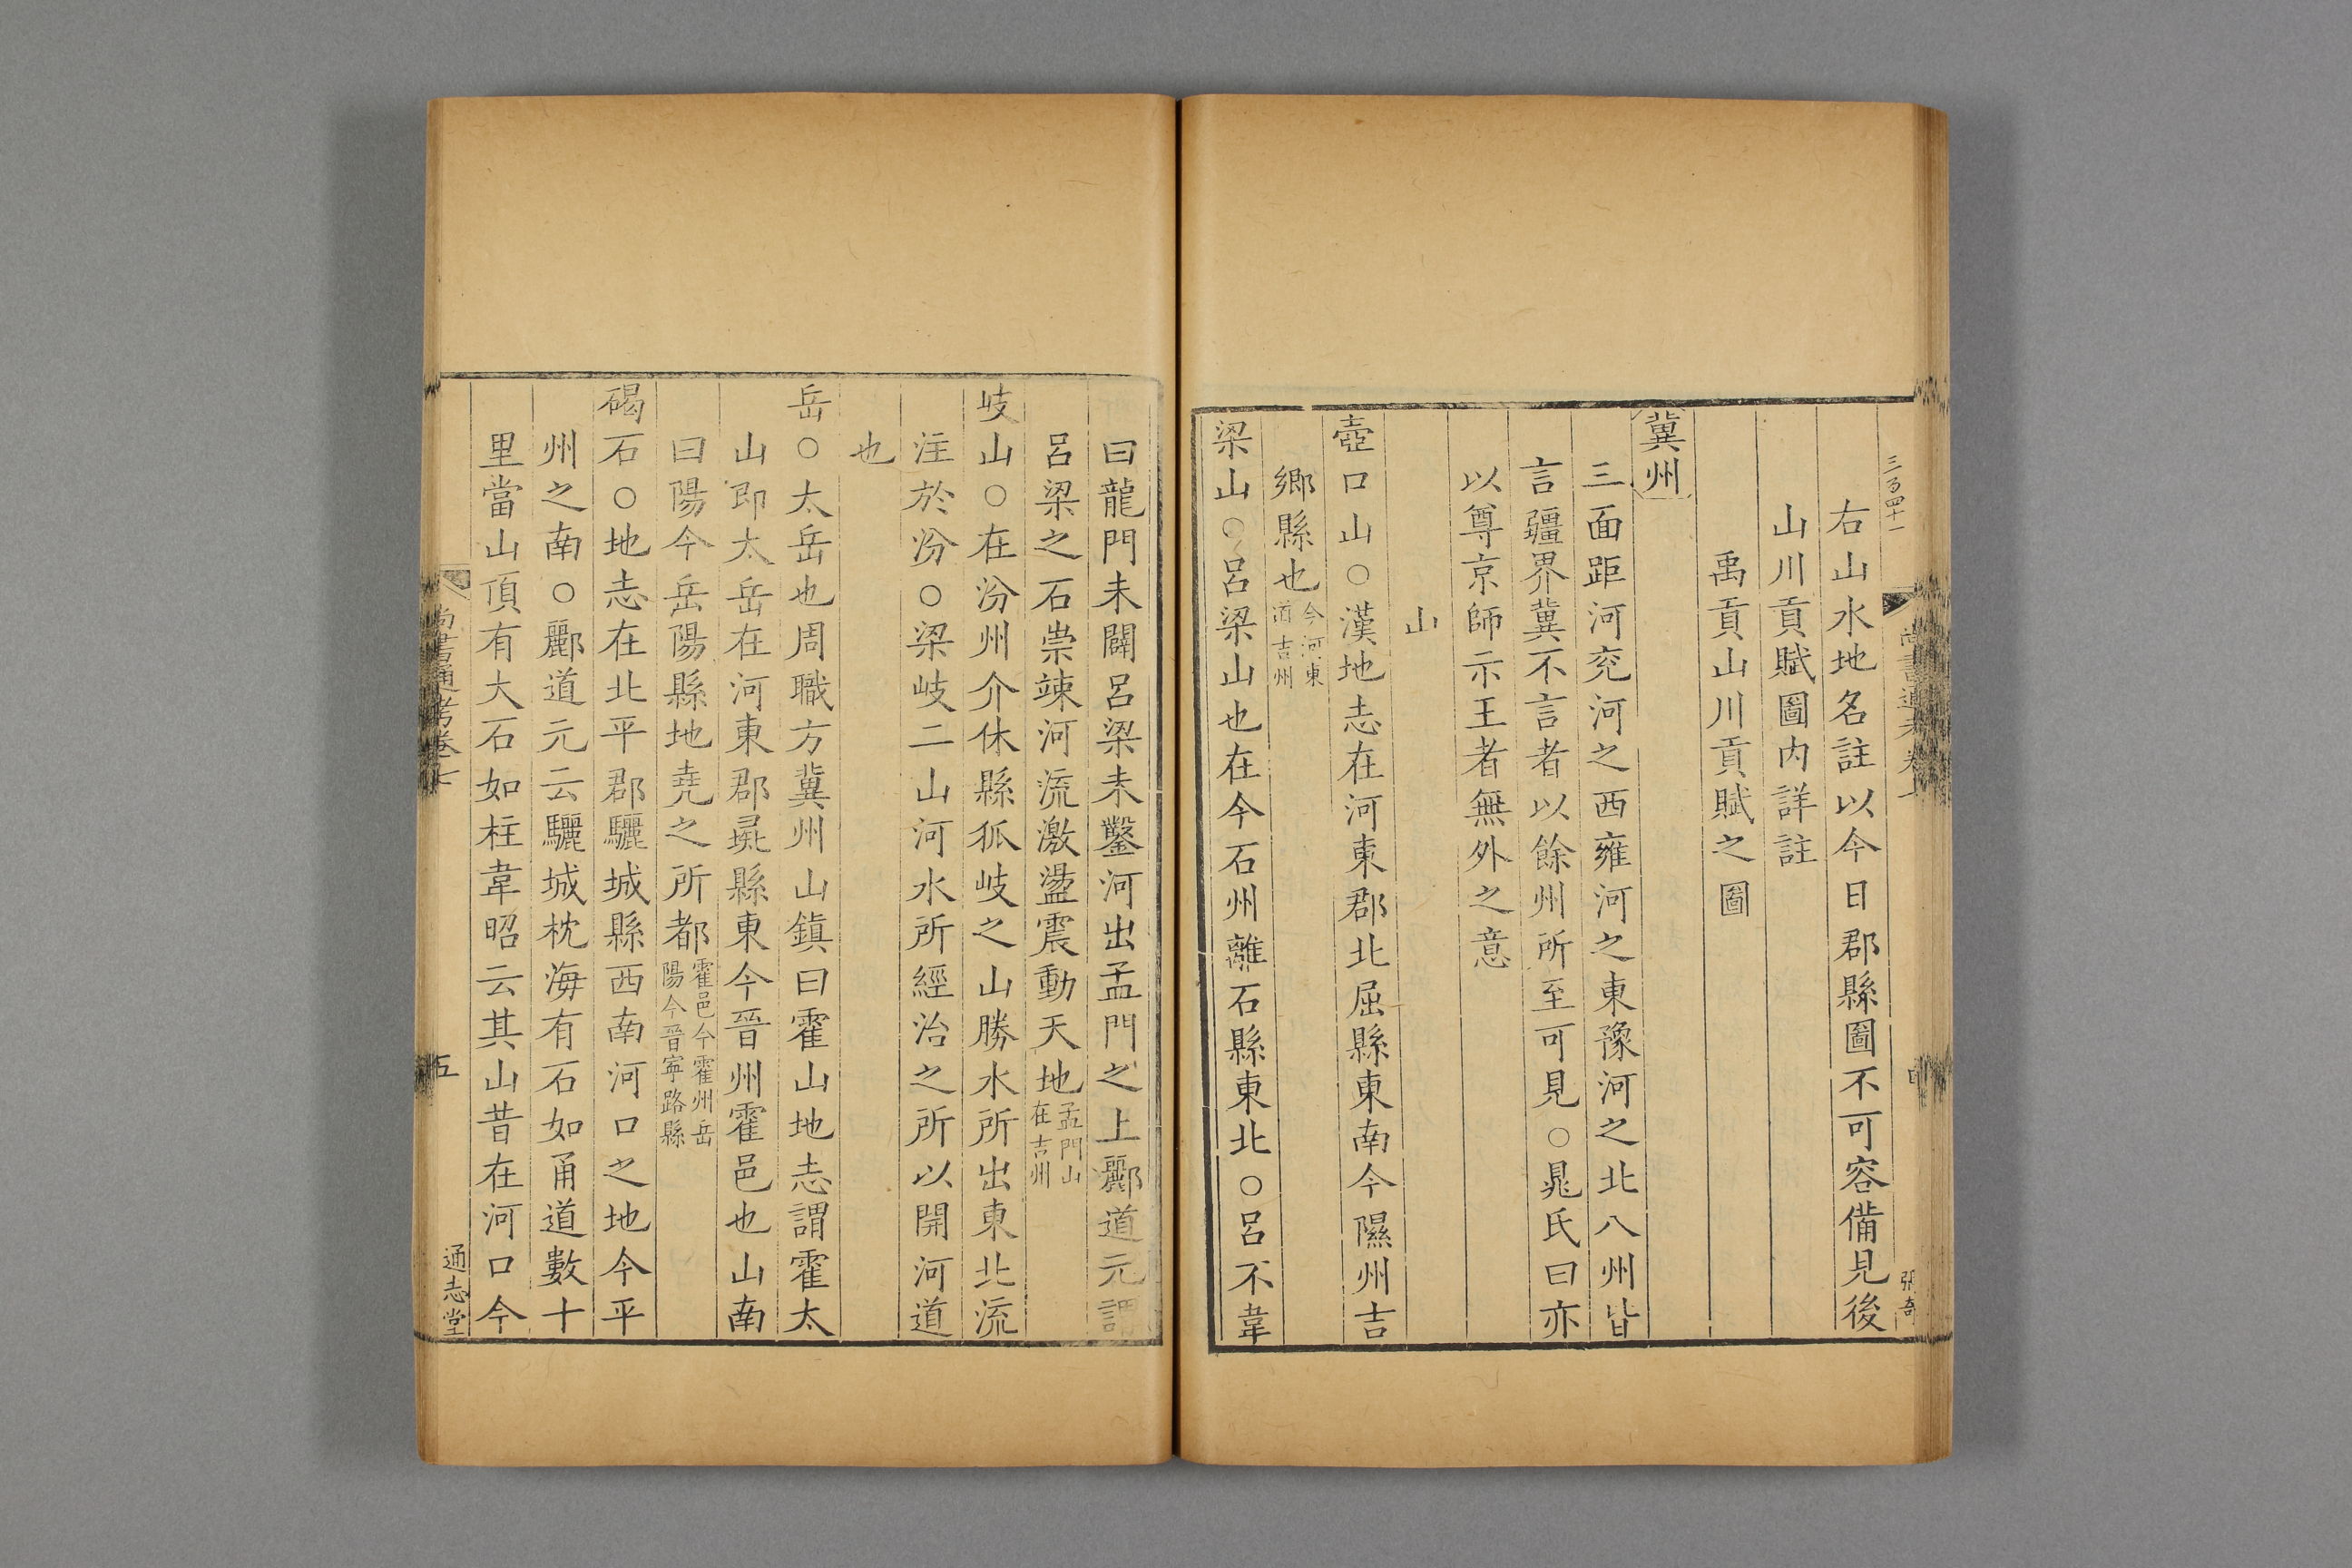 三百四十一
尚書通考卷七
張奇
右山水地名註以今日郡縣圖不可容備見後
山川貢賦圖內詳註
禹貢山川貢賦之圖
冀州
三面距河兖河之西雍河之東豫河之北八州皆
言疆界冀不言者以餘州所至可見○晁氏曰亦
以尊京師示王者無外之意
山
壺口山○漢地志在河東郡北屈縣東南今隰州吉
鄉縣也今河東
道吉州
梁山○呂梁山也在今石州離石縣東北○呂不韋
曰龍門未闢呂梁未鑿河出孟門之上酈道元謂
呂梁之石崇竦河流激盪震動天地孟門山
在吉州
岐山○在汾州介休縣狐岐之山勝水所出東北流
注於汾○梁岐二山河水所經治之所以開河道
也
岳○太岳也周職方冀州山鎮曰霍山地志謂霍太
山即太岳在河東郡彘縣東今晉州霍邑也山南
曰陽今岳陽縣地堯之所都霍邑今霍州岳
陽今晉寧路縣
碣石○地志在北平郡驪城縣西南河口之地今平
州之南○酈道元云驪城枕海有石如甬道數十
里當山頂有大石如柱韋昭云其山昔在河口今
尚書通考卷七
五
通志堂